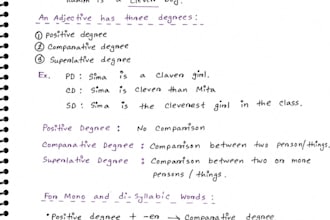 is a Clever boy.
An Adjective has three degrees:
① Positive degree
② Comparative degree
③ Superlative degree
Ex. PD: Sima is a claver girl.
CD: Sima is clever than Mita
SD: Sima is the cleverest girl in the class.
Positive Degree: No Comparison
Comparative Degree: Comparison between two person/things.
Superlative Degree: Comparison between two or more
persons / things.
For Mono and di-Syllabic Words:
• Positive degree + -er → Comparative degree